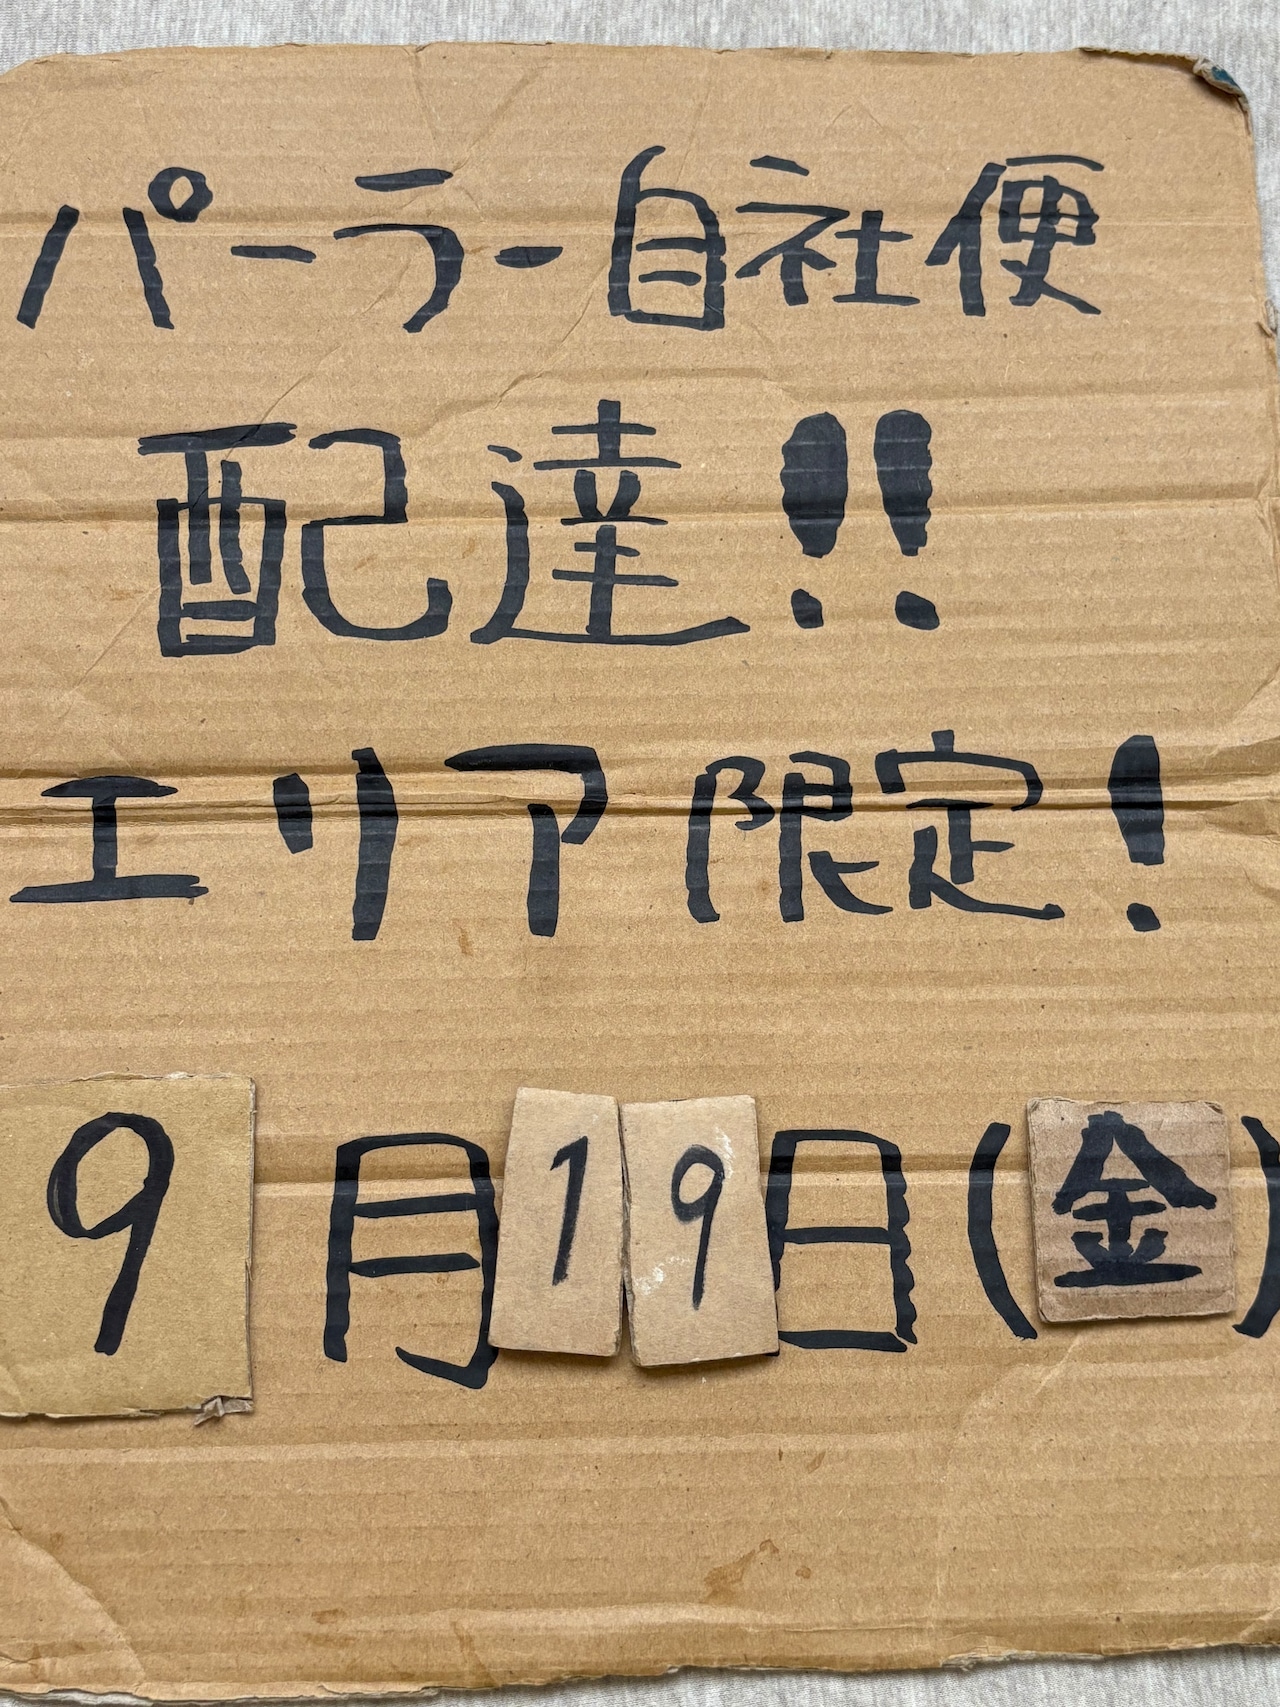 パーラー自社便
配達!!
エリア限定!
9月19日(金)